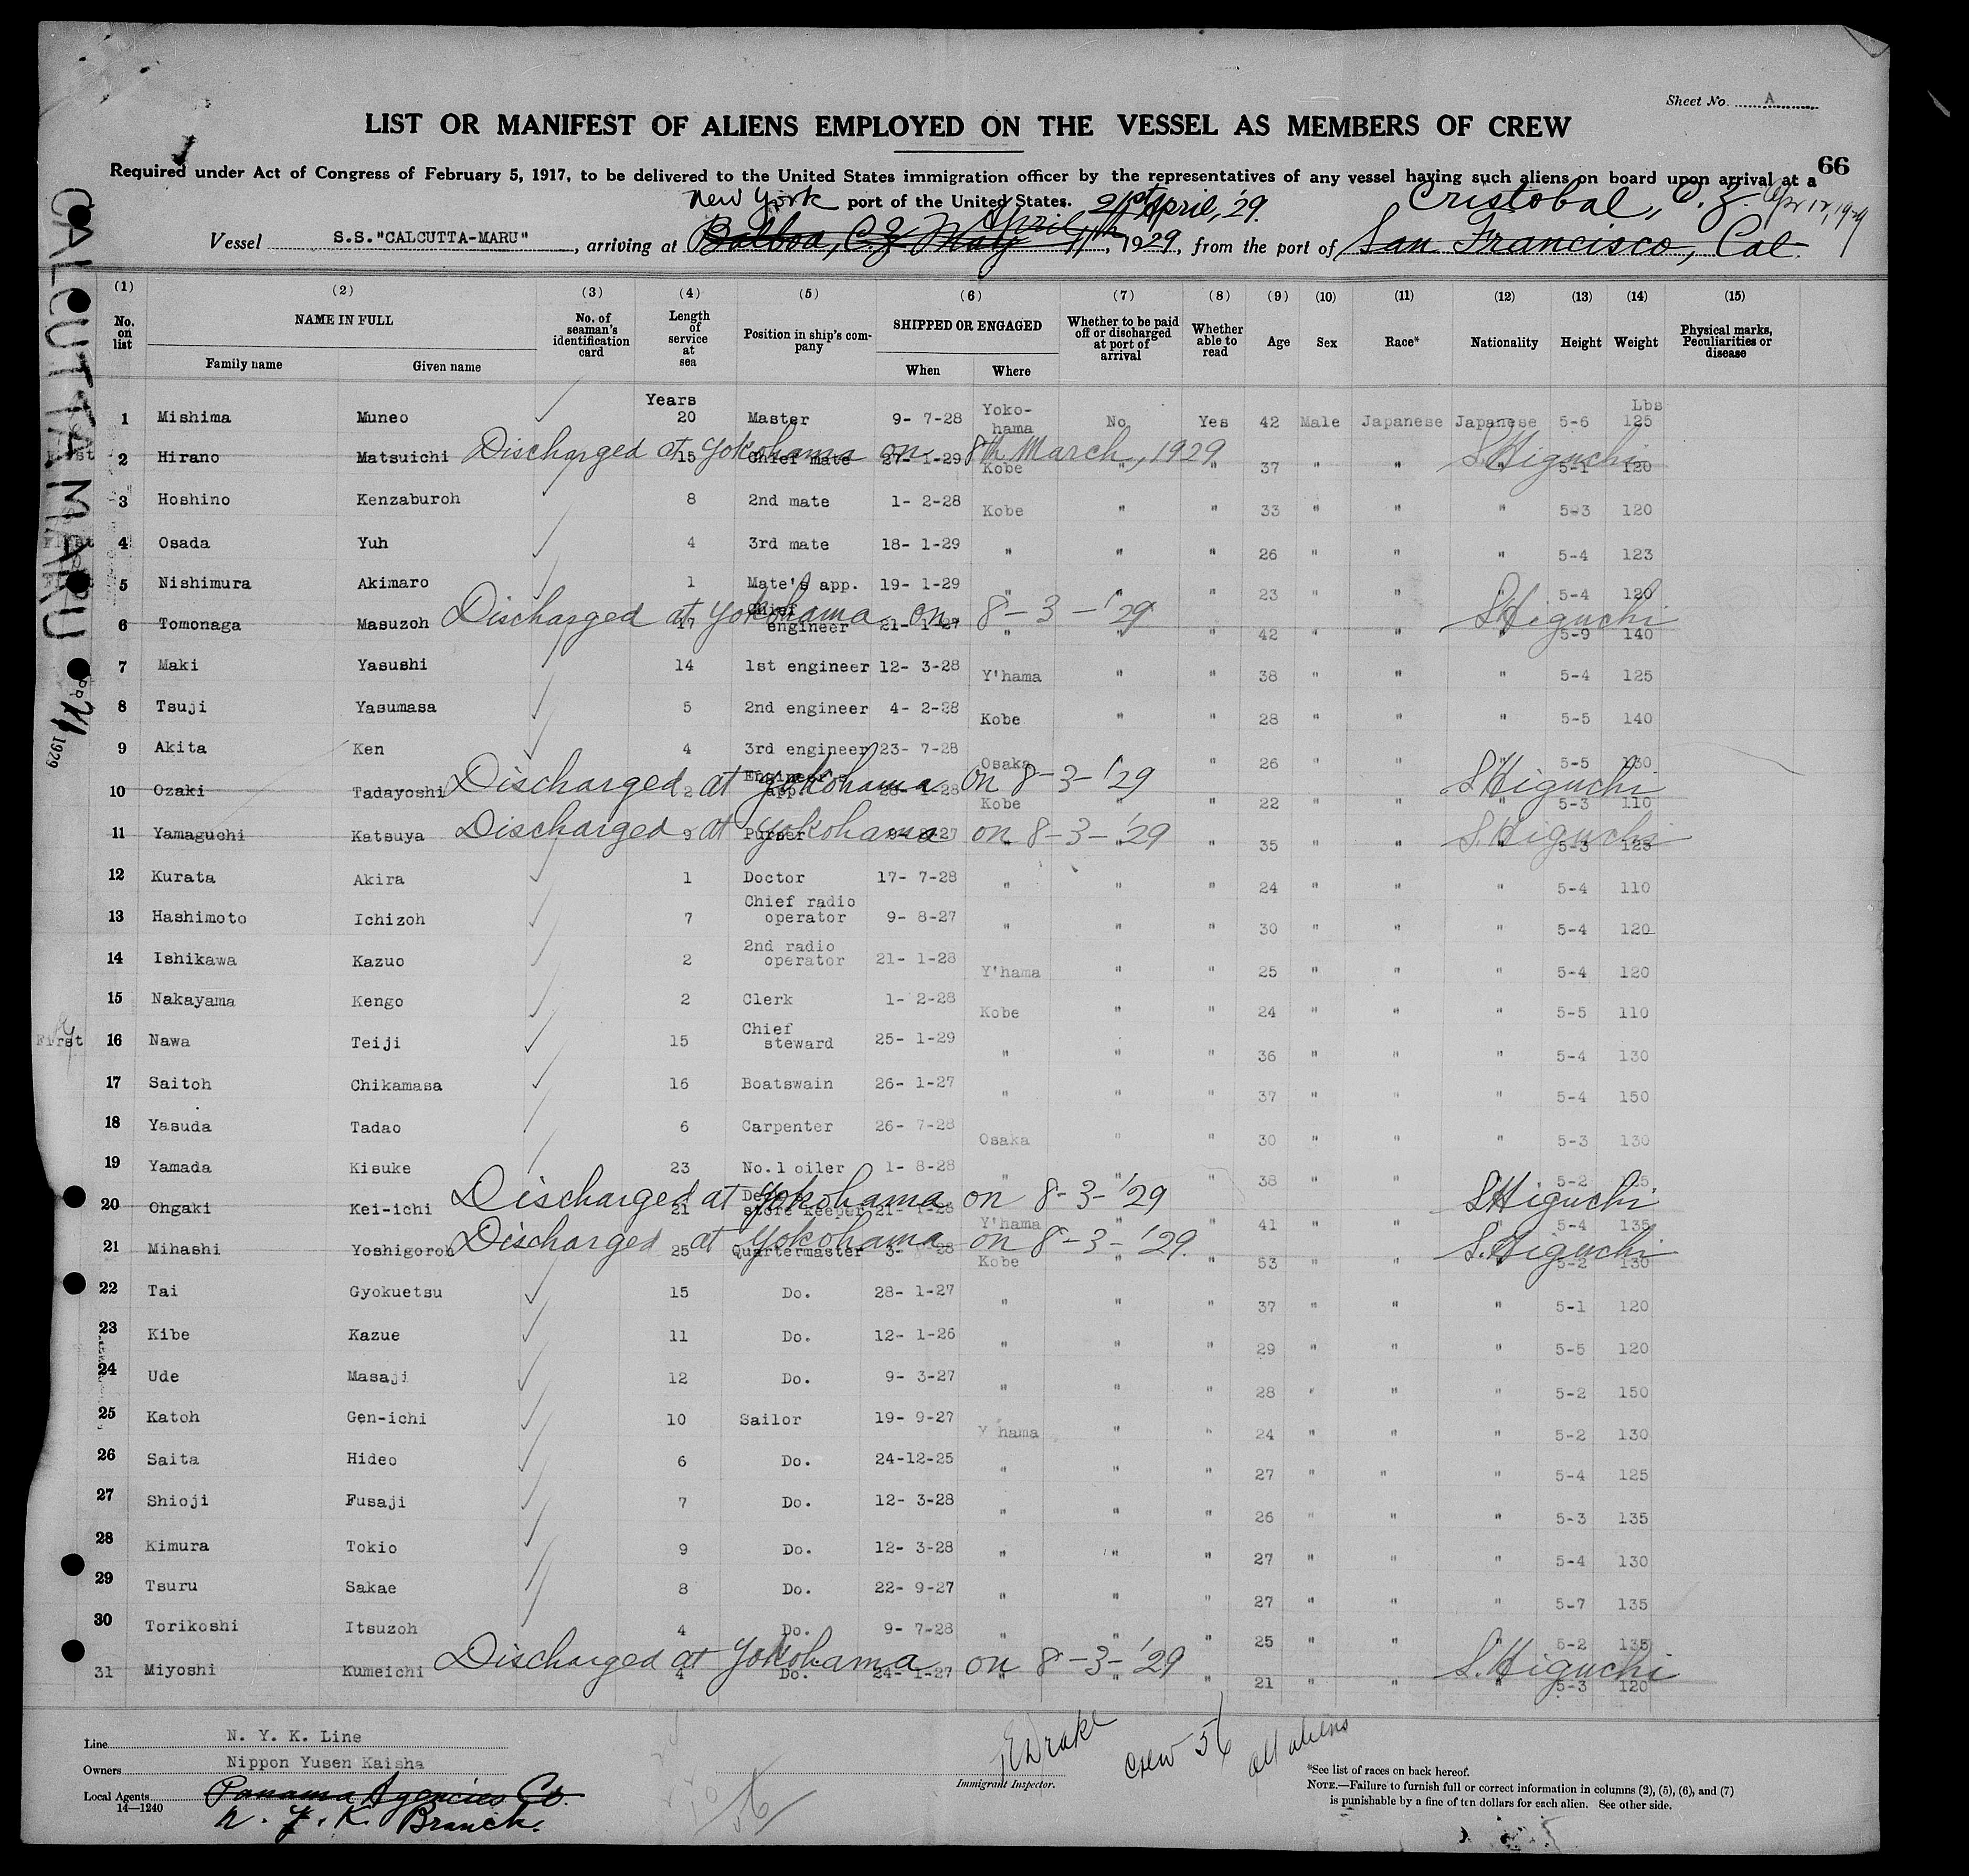 Sheet No. A
LIST OR MANIFEST OF ALIENS EMPLOYED ON THE VESSEL AS MEMBERS OF CREW
66
Required under Act of Congress of February 5, 1917, to be delivered to the United States immigration officer by the representatives of any vessel having such aliens on board upon arrival at a
New York port of the United States. 21st April, '29. Cristobal, C. Z. Apr 12, 1929
Vessel S.S."CALCUTTA-MARU", arriving at Balboa, C.Z. May April 11th, 1929, from the port of San Francisco, Cal.
CALCUTTA MARU
APR 21 1929
(1) (2) (3) (4) (5) (6) (7) (8) (9) (10) (11) (12) (13) (14) (15)
No. on list NAME IN FULL Family name Given name No. of seaman's identification card Length of service at sea Position in ship's company SHIPPED OR ENGAGED When Where Whether to be paid off or discharged at port of arrival Whether able to read Age Sex Race* Nationality Height Weight Physical marks, Peculiarities or disease
Years Lbs
1 Mishima Muneo 20 Master 9- 7-28 Yoko-hama No Yes 42 Male Japanese Japanese 5-6 125
2 Hirano Matsuichi 15 Chief mate 27- 1-29 Kobe " " 37 " " " 5-1 120
Discharged at Yokohama on 8th March, 1929 S.Higuchi
3 Hoshino Kenzaburoh 8 2nd mate 1- 2-28 Kobe " " 33 " " " 5-3 120
First 4 Osada Yuh 4 3rd mate 18- 1-29 " " " 26 " " " 5-4 123
5 Nishimura Akimaro 1 Mate's app. 19- 1-29 " " " 23 " " " 5-4 120
6 Tomonaga Masuzoh 17 Chief engineer 21- 1-27 " " " 42 " " " 5-9 140
Discharged at Yokohama on 8-3-'29 S.Higuchi
7 Maki Yasushi 14 1st engineer 12- 3-28 Y'hama " " 38 " " " 5-4 125
8 Tsuji Yasumasa 5 2nd engineer 4- 2-28 Kobe " " 28 " " " 5-5 140
9 Akita Ken 4 3rd engineer 23- 7-28 Osaka " " 26 " " " 5-5 130
10 Ozaki Tadayoshi 2 Engineer's app. Kobe " " 22 " " " 5-3 110
Discharged at Yokohama on 8-3-'29 S.Higuchi
11 Yamaguchi Katsuya 9 Purser " " " 35 " " " 5-3 125
Discharged at Yokohama on 8-3-'29 S.Higuchi
12 Kurata Akira 1 Doctor 17- 7-28 " " " 24 " " " 5-4 110
13 Hashimoto Ichizoh 7 Chief radio operator 9- 8-27 " " " 30 " " " 5-4 120
14 Ishikawa Kazuo 2 2nd radio operator 21- 1-28 Y'hama " " 25 " " " 5-4 120
15 Nakayama Kengo 2 Clerk 1- 2-28 Kobe " " 24 " " " 5-5 110
First 16 Nawa Teiji 15 Chief steward 25- 1-29 " " " 36 " " " 5-4 130
17 Saitoh Chikamasa 16 Boatswain 26- 1-27 " " " 37 " " " 5-4 150
18 Yasuda Tadao 6 Carpenter 26- 7-28 Osaka " " 30 " " " 5-3 130
19 Yamada Kisuke 23 No.1 oiler 1- 8-28 " " " 38 " " " 5-2
20 Ohgaki Kei-ichi 21 store keeper 21- 1-28 Y'hama " " 41 " " " 5-4 135
Discharged at Yokohama on 8-3-'29 S.Higuchi
21 Mihashi Yoshigoroh 25 Quartermaster Kobe " " 53 " " " 5-2 130
Discharged at Yokohama on 8-3-'29. S.Higuchi
22 Tai Gyokuetsu 15 Do. 28- 1-27 " " " 37 " " " 5-1 120
23 Kibe Kazue 11 Do. 12- 1-26 " " " 29 " " " 5-5 120
24 Ude Masaji 12 Do. 9- 3-27 " " " 28 " " " 5-2 150
25 Katoh Gen-ichi 10 Sailor 19- 9-27 Y'hama " " 24 " " " 5-2 130
26 Saita Hideo 6 Do. 24-12-25 " " " 27 " " " 5-4 125
27 Shioji Fusaji 7 Do. 12- 3-28 " " " 26 " " " 5-3 135
28 Kimura Tokio 9 Do. 12- 3-28 " " " 27 " " " 5-4 130
29 Tsuru Sakae 8 Do. 22- 9-27 " " " 27 " " " 5-7 135
30 Torikoshi Itsuzoh 4 Do. 9- 7-28 " " " 25 " " " 5-2 135
31 Miyoshi Kumeichi 4 Do. 24- 1-27 " " " 21 " " " 5-3 120
Discharged at Yokohama on 8-3-'29 S.Higuchi
Line N. Y. K. Line
Owners Nippon Yusen Kaisha
Local Agents Panama Agencies Co.
14—1240 N. Y. K. Branch.
56
Drake
Immigrant Inspector.
Crew 56 all aliens
*See list of races on back hereof.
NOTE.—Failure to furnish full or correct information in columns (2), (5), (6), and (7)
is punishable by a fine of ten dollars for each alien. See other side.